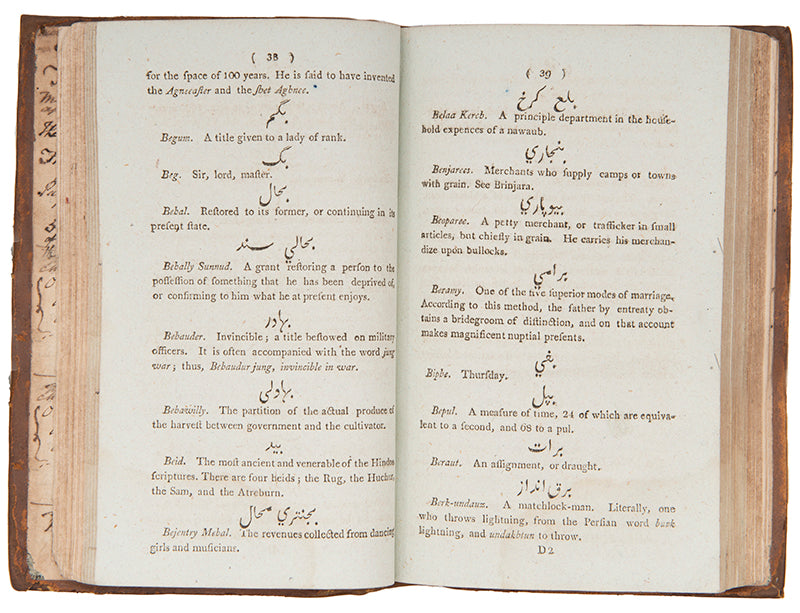 ( 38 )
for the space of 100 years. He is said to have invented
the Agneeaster and the shet Aghnee.
بگم
Begum. A title given to a lady of rank.
بگ
Beg. Sir, lord, master.
بحال
Behal. Restored to its former, or continuing in its
present state.
بحالي سند
Behally Sunnud. A grant restoring a person to the
possession of something that he has been deprived of,
or confirming to him what he at present enjoys.
بهادر
Behauder. Invincible; a title bestowed on military
officers. It is often accompanied with the word jung
war; thus, Behaudur jung, invincible in war.
بهاولي
Behawilly. The partition of the actual produce of
the harvest between government and the cultivator.
بيد
Beid. The most ancient and venerable of the Hindoo
scriptures. There are four beids; the Rug, the Huchur,
the Sam, and the Atreburn.
بجنتري محال
Bejentry Mehal. The revenues collected from dancing
girls and musicians.
( 39 )
بلع كرخ
Belaa Kerch. A principle department in the house-
hold expences of a nawaub.
بنجاري
Benjarees. Merchants who supply camps or towns
with grain. See Brinjara.
بيوپاري
Beoparee. A petty merchant, or trafficker in small
articles, but chiefly in grain. He carries his merchan-
dize upon bullocks.
برامي
Beramy. One of the five superior modes of marriage.
According to this method, the father by entreaty ob-
tains a bridegroom of distinction, and on that account
makes magnificent nuptial presents.
بفي
Biphe. Thursday.
بپل
Bepul. A measure of time, 24 of which are equiva-
lent to a second, and 68 to a pul.
برات
Beraut. An assignment, or draught.
برق انداز
Berk-undauz. A matchlock-man. Literally, one
who throws lightning, from the Persian word burk
lightning, and undakhtun to throw.
D 2